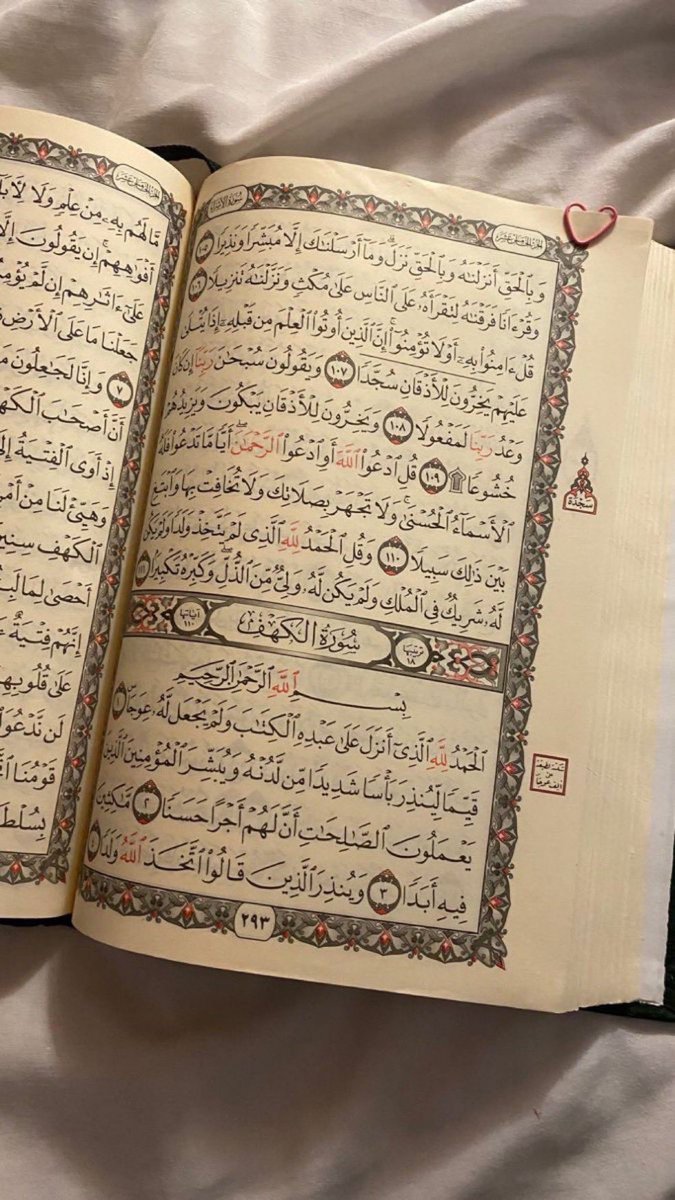 سُورَةُ الإِسْرَاءِ
الجُزْءُ الخَامِسَ عَشَرَ
وَبِٱلْحَقِّ أَنزَلْنَٰهُ وَبِٱلْحَقِّ نَزَلَۗ وَمَآ أَرْسَلْنَٰكَ إِلَّا مُبَشِّرًا وَنَذِيرًا ١٠٥
وَقُرْءَانًا فَرَقْنَٰهُ لِتَقْرَأَهُۥ عَلَى ٱلنَّاسِ عَلَىٰ مُكْثٍ وَنَزَّلْنَٰهُ تَنزِيلًا ١٠٦
قُلْ ءَامِنُوا۟ بِهِۦٓ أَوْ لَا تُؤْمِنُوٓا۟ۚ إِنَّ ٱلَّذِينَ أُوتُوا۟ ٱلْعِلْمَ مِن قَبْلِهِۦٓ إِذَا يُتْلَىٰ
عَلَيْهِمْ يَخِرُّونَ لِلْأَذْقَانِ سُجَّدًا ١٠٧ وَيَقُولُونَ سُبْحَٰنَ رَبِّنَآ إِن كَانَ
وَعْدُ رَبِّنَا لَمَفْعُولًا ١٠٨ وَيَخِرُّونَ لِلْأَذْقَانِ يَبْكُونَ وَيَزِيدُهُمْ
خُشُوعًا ۩ ١٠٩ قُلِ ٱدْعُوا۟ ٱللَّهَ أَوِ ٱدْعُوا۟ ٱلرَّحْمَٰنَۖ أَيًّا مَّا تَدْعُوا۟ فَلَهُ
ٱلْأَسْمَآءُ ٱلْحُسْنَىٰۚ وَلَا تَجْهَرْ بِصَلَاتِكَ وَلَا تُخَافِتْ بِهَا وَٱبْتَغِ
بَيْنَ ذَٰلِكَ سَبِيلًا ١١٠ وَقُلِ ٱلْحَمْدُ لِلَّهِ ٱلَّذِى لَمْ يَتَّخِذْ وَلَدًا وَلَمْ يَكُن
لَّهُۥ شَرِيكٌ فِى ٱلْمُلْكِ وَلَمْ يَكُن لَّهُۥ وَلِىٌّ مِّنَ ٱلذُّلِّۖ وَكَبِّرْهُ تَكْبِيرًۢا ١١١
تَرْتِيبُهَا ١٨ سُورَةُ الكَهْفِ آيَاتُهَا ١١٠
بِسْمِ ٱللَّهِ ٱلرَّحْمَٰنِ ٱلرَّحِيمِ
ٱلْحَمْدُ لِلَّهِ ٱلَّذِىٓ أَنزَلَ عَلَىٰ عَبْدِهِ ٱلْكِتَٰبَ وَلَمْ يَجْعَل لَّهُۥ عِوَجَاۜ ١
قَيِّمًا لِّيُنذِرَ بَأْسًا شَدِيدًا مِّن لَّدُنْهُ وَيُبَشِّرَ ٱلْمُؤْمِنِينَ ٱلَّذِينَ
يَعْمَلُونَ ٱلصَّٰلِحَٰتِ أَنَّ لَهُمْ أَجْرًا حَسَنًا ٢ مَّٰكِثِينَ
فِيهِ أَبَدًا ٣ وَيُنذِرَ ٱلَّذِينَ قَالُوا۟ ٱتَّخَذَ ٱللَّهُ وَلَدًا ٤
٢٩٣
سَجْدَة
الجُزْءُ الخَامِسَ عَشَرَ
مَّا لَهُم بِهِۦ مِنْ عِلْمٍ وَلَا لِـَٔابَا
أَفْوَٰهِهِمْۚ إِن يَقُولُونَ إِلَّا
عَلَىٰٓ ءَاثَٰرِهِمْ إِن لَّمْ يُؤْمِنُ
جَعَلْنَا مَا عَلَى ٱلْأَرْضِ
٧ وَإِنَّا لَجَٰعِلُونَ مَا
أَنَّ أَصْحَٰبَ ٱلْكَهْ
إِذْ أَوَى ٱلْفِتْيَةُ إِلَى
وَهَيِّئْ لَنَا مِنْ أَمْرِ
ٱلْكَهْفِ سِنِينَ
أَحْصَىٰ لِمَا لَبِثُ
إِنَّهُمْ فِتْيَةٌ
عَلَىٰ قُلُوبِهِ
لَن نَّدْعُوَا۟
قَوْمُنَا ٱتَّ
بِسُلْطَٰ